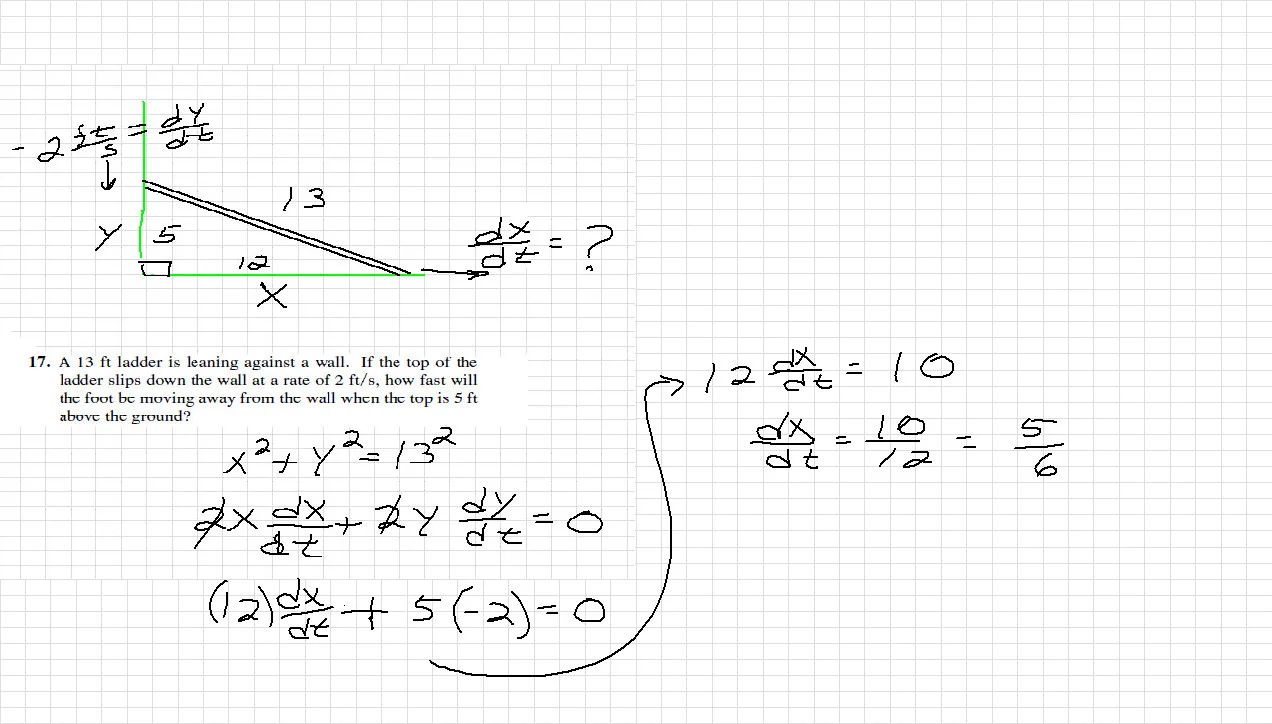 -2 ft/s = dy/dt
13
y 5
dx/dt = ?
12
x
17. A 13 ft ladder is leaning against a wall. If the top of the
ladder slips down the wall at a rate of 2 ft/s, how fast will
the foot be moving away from the wall when the top is 5 ft
above the ground?
x² + y² = 13²
2x dx/dt + 2y dy/dt = 0
(12) dx/dt + 5(-2) = 0
12 dx/dt = 10
dx/dt = 10/12 = 5/6